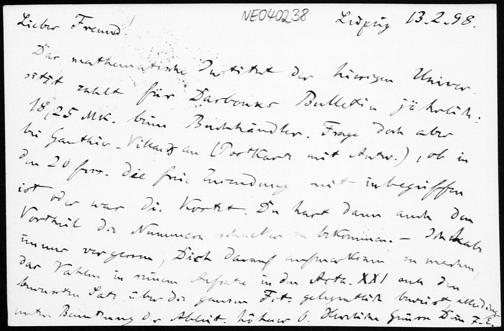 NE040238
Lieber Freund! Leipzig 13.2.98.
Das mathematische Institut der hiesigen Univer-
sität zahlt für Darboux Bulletin jährlich:
18,25 Mk. beim Buchhändler. Frage doch aber
bei Gauthier-Villars an (Postkarte mit Antw.), ob in
den 20 frcs. die freie Zusendung mit inbegriffen
ist oder war die Kosten. Du hast dann auch den
Vorteil die Nummern schneller zu bekommen. — Ich habe
immer vergessen, Dich darauf aufmerksam zu machen,
das Vahlen in seinem Aufsatz in den Acta XXI auch den
bewussten Satz über die ganzen F<sup>t.</sup> gelegentlich beweist, allerdings
unter Benutzung der Ableit. höherer O. Herzliche Grüsse Dein F. E.